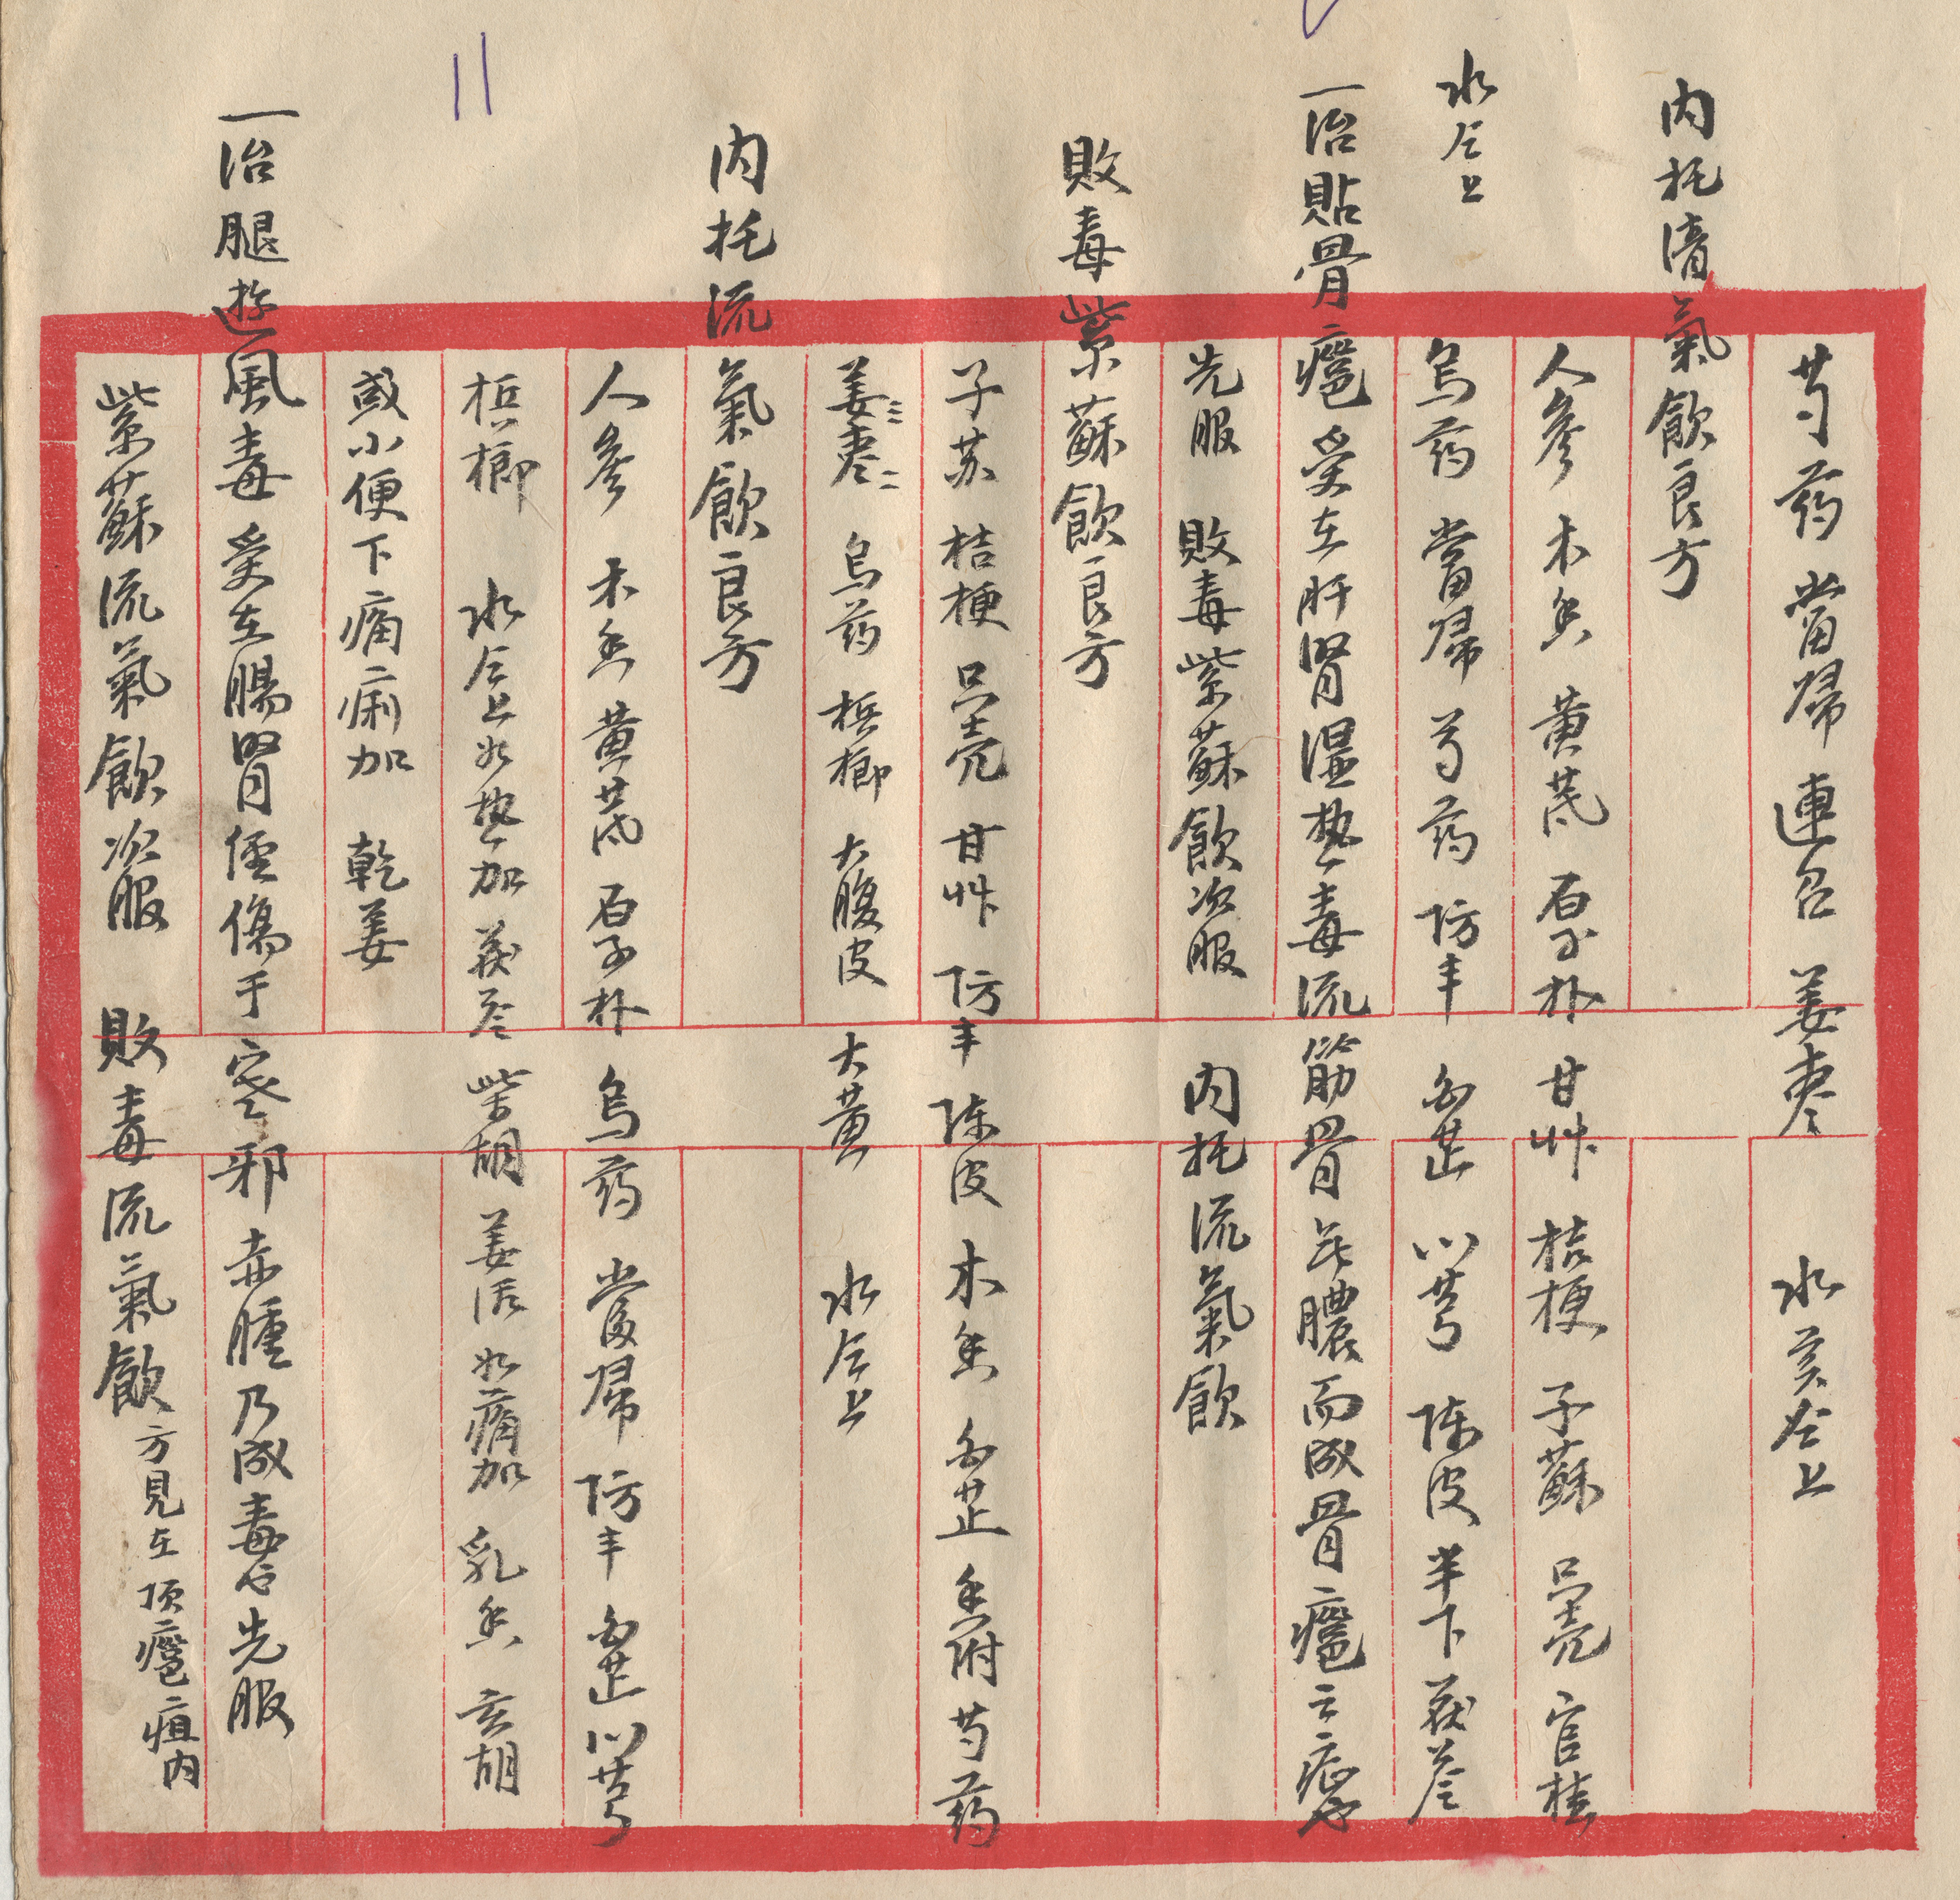 芍药 當歸 連召 姜枣 水煎仝上
内托清氣飲良方
人參 木香 黄芪 厚朴 甘艸 桔梗 子蘇 只壳 官桂
烏药 當歸 芍药 防丰 白芷 川芎 陈皮 半下 茯苓
水仝上
一治貼骨癰受在肝腎濕热毒流筋骨 膿而成骨癰之症也
先服 敗毒紫蘇飲次服 内托流氣飲
敗毒紫蘇飲良方
子苏 桔梗 只壳 甘艸 防丰 陈皮 木香 白芷 香附 芍药
姜枣 烏药 梹榔 大腹皮 大黄 水仝上
内托流氣飲良方
人參 木香 黄芪 厚朴 烏药 當歸 防丰 白芷 川芎
梹榔 水仝上 如热加 茯苓 柴胡 姜活 如痛加 乳香 玄胡
或小便下痛痢加 乾姜
一治腿遊風毒受在腸腎經傷于寒邪赤腫乃成毒也先服
紫蘇流氣飲次服 敗毒流氣飲 方見在項癰疽内
11